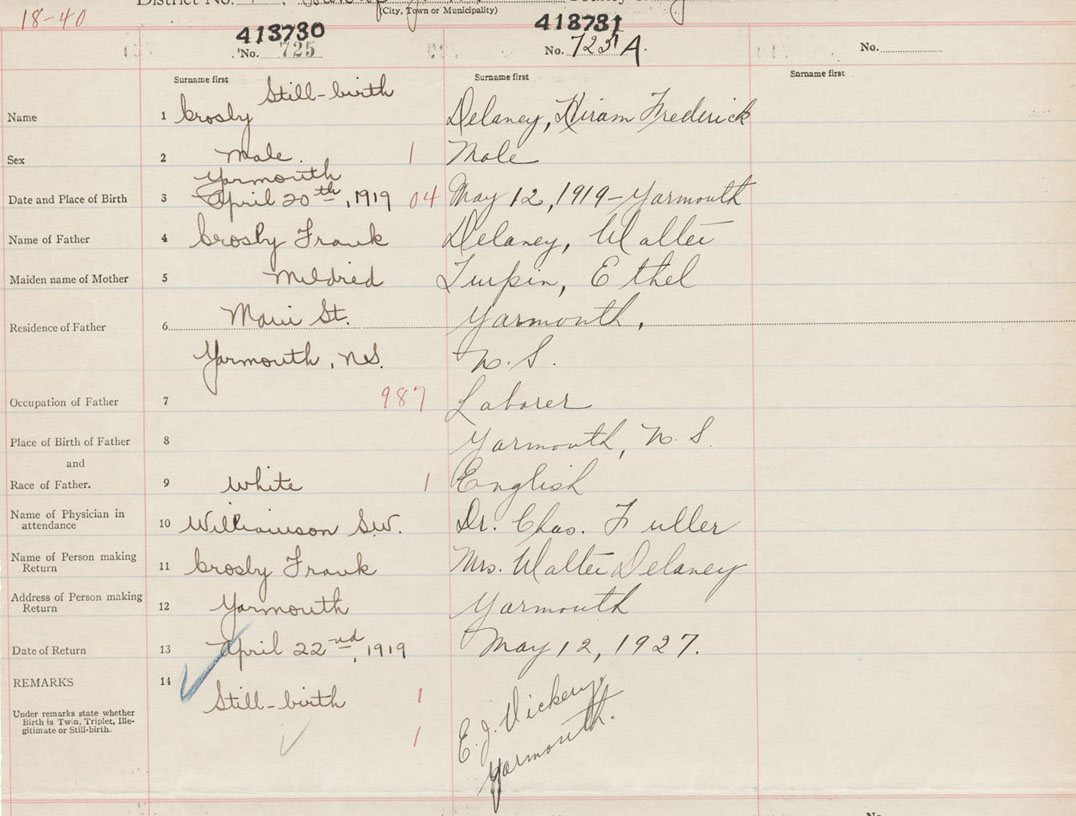 18-40
District No.
(City, Town or Municipality)
413730
No. 725
413731
No. 725 A.
No.
Surname first
Surname first
Surname first
Still-birth
Name 1 Crosby Delaney, Hiram Frederick
Sex 2 Male. 1 Male
Yarmouth
Date and Place of Birth 3 April 20th, 1919 04 May 12, 1919 - Yarmouth
Name of Father 4 Crosby Frank Delaney, Walter
Maiden name of Mother 5 Mildred Turpin, Ethel
Residence of Father 6 Main St. Yarmouth,
Yarmouth, N.S. N.S.
Occupation of Father 7 987 Laborer
Place of Birth of Father 8 Yarmouth, N.S.
and
Race of Father. 9 White 1 English
Name of Physician in
attendance 10 Williamson S.W. Dr. Chas. Fuller
Name of Person making
Return 11 Crosby Frank Mrs. Walter Delaney
Address of Person making
Return 12 Yarmouth Yarmouth
Date of Return 13 April 22nd, 1919 May 12, 1927.
REMARKS 14
Still-birth 1
Under remarks state whether
Birth is Twin, Triplet, Ille-
gitimate or Still-birth.
1
E. J. Vickery
Yarmouth.
No.